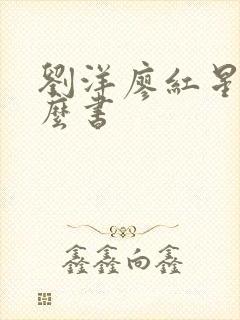 劉洋廖紅星
麼書
鑫鑫向鑫